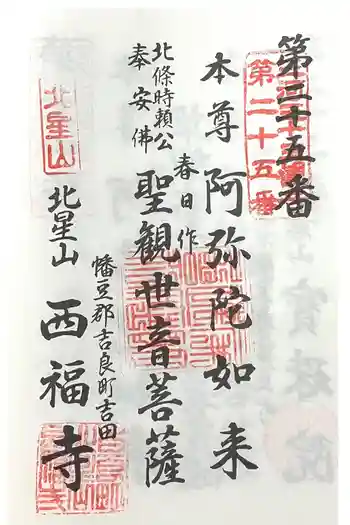 第二十五番
第二十五番
本尊 阿弥陀如来
春日作
聖観世音菩薩
北條時頼公
奉安佛
幡豆郡吉良町吉田
北星山
北星山 西福寺